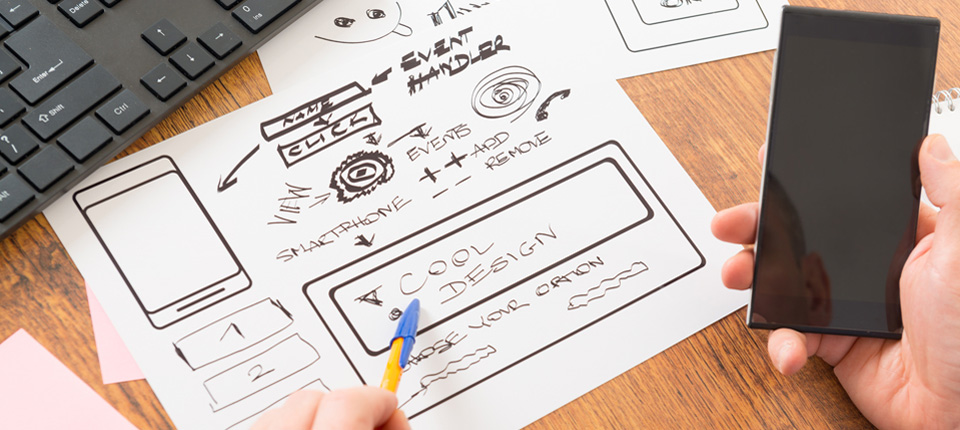 Delete
Enter
Shift
Ctrl
Alt
Ins
EVENT
HANDLER
NAME
CLICK
EVENTS
+ + ADD
- - REMOVE
VIEW
SMARTPHONE
COOL
DESIGN
YOUR OPTION
1
2